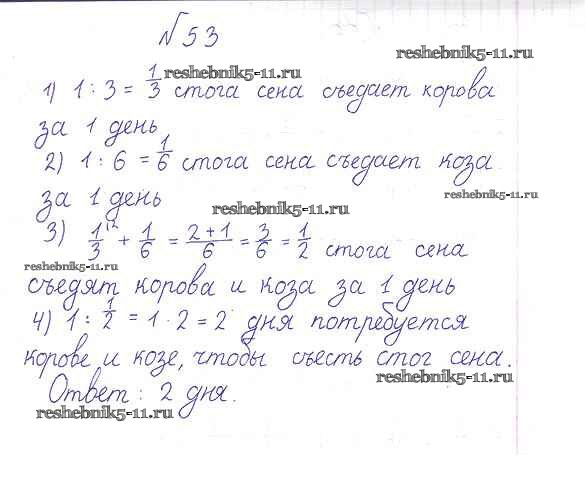 №53
reshebnik5-11.ru
1) 1 : 3 = 1/3 стога сена съедает корова
reshebnik5-11.ru
за 1 день
2) 1 : 6 = 1/6 стога сена съедает коза
reshebnik5-11.ru
за 1 день
reshebnik5-11.ru
3) 1/3 \2 + 1/6 = (2+1)/6 = 3/6 = 1/2 стога сена
reshebnik5-11.ru
съедят корова и коза за 1 день
4) 1 : 1/2 = 1 · 2 = 2 дня потребуется
корове и козе, чтобы съесть стог сена.
reshebnik5-11.ru
Ответ: 2 дня.
reshebnik5-11.ru